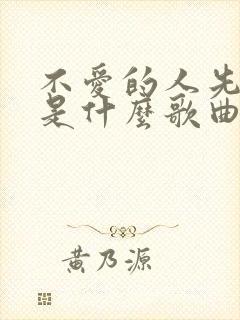 不愛的人先
是什麼歌曲
黃乃源